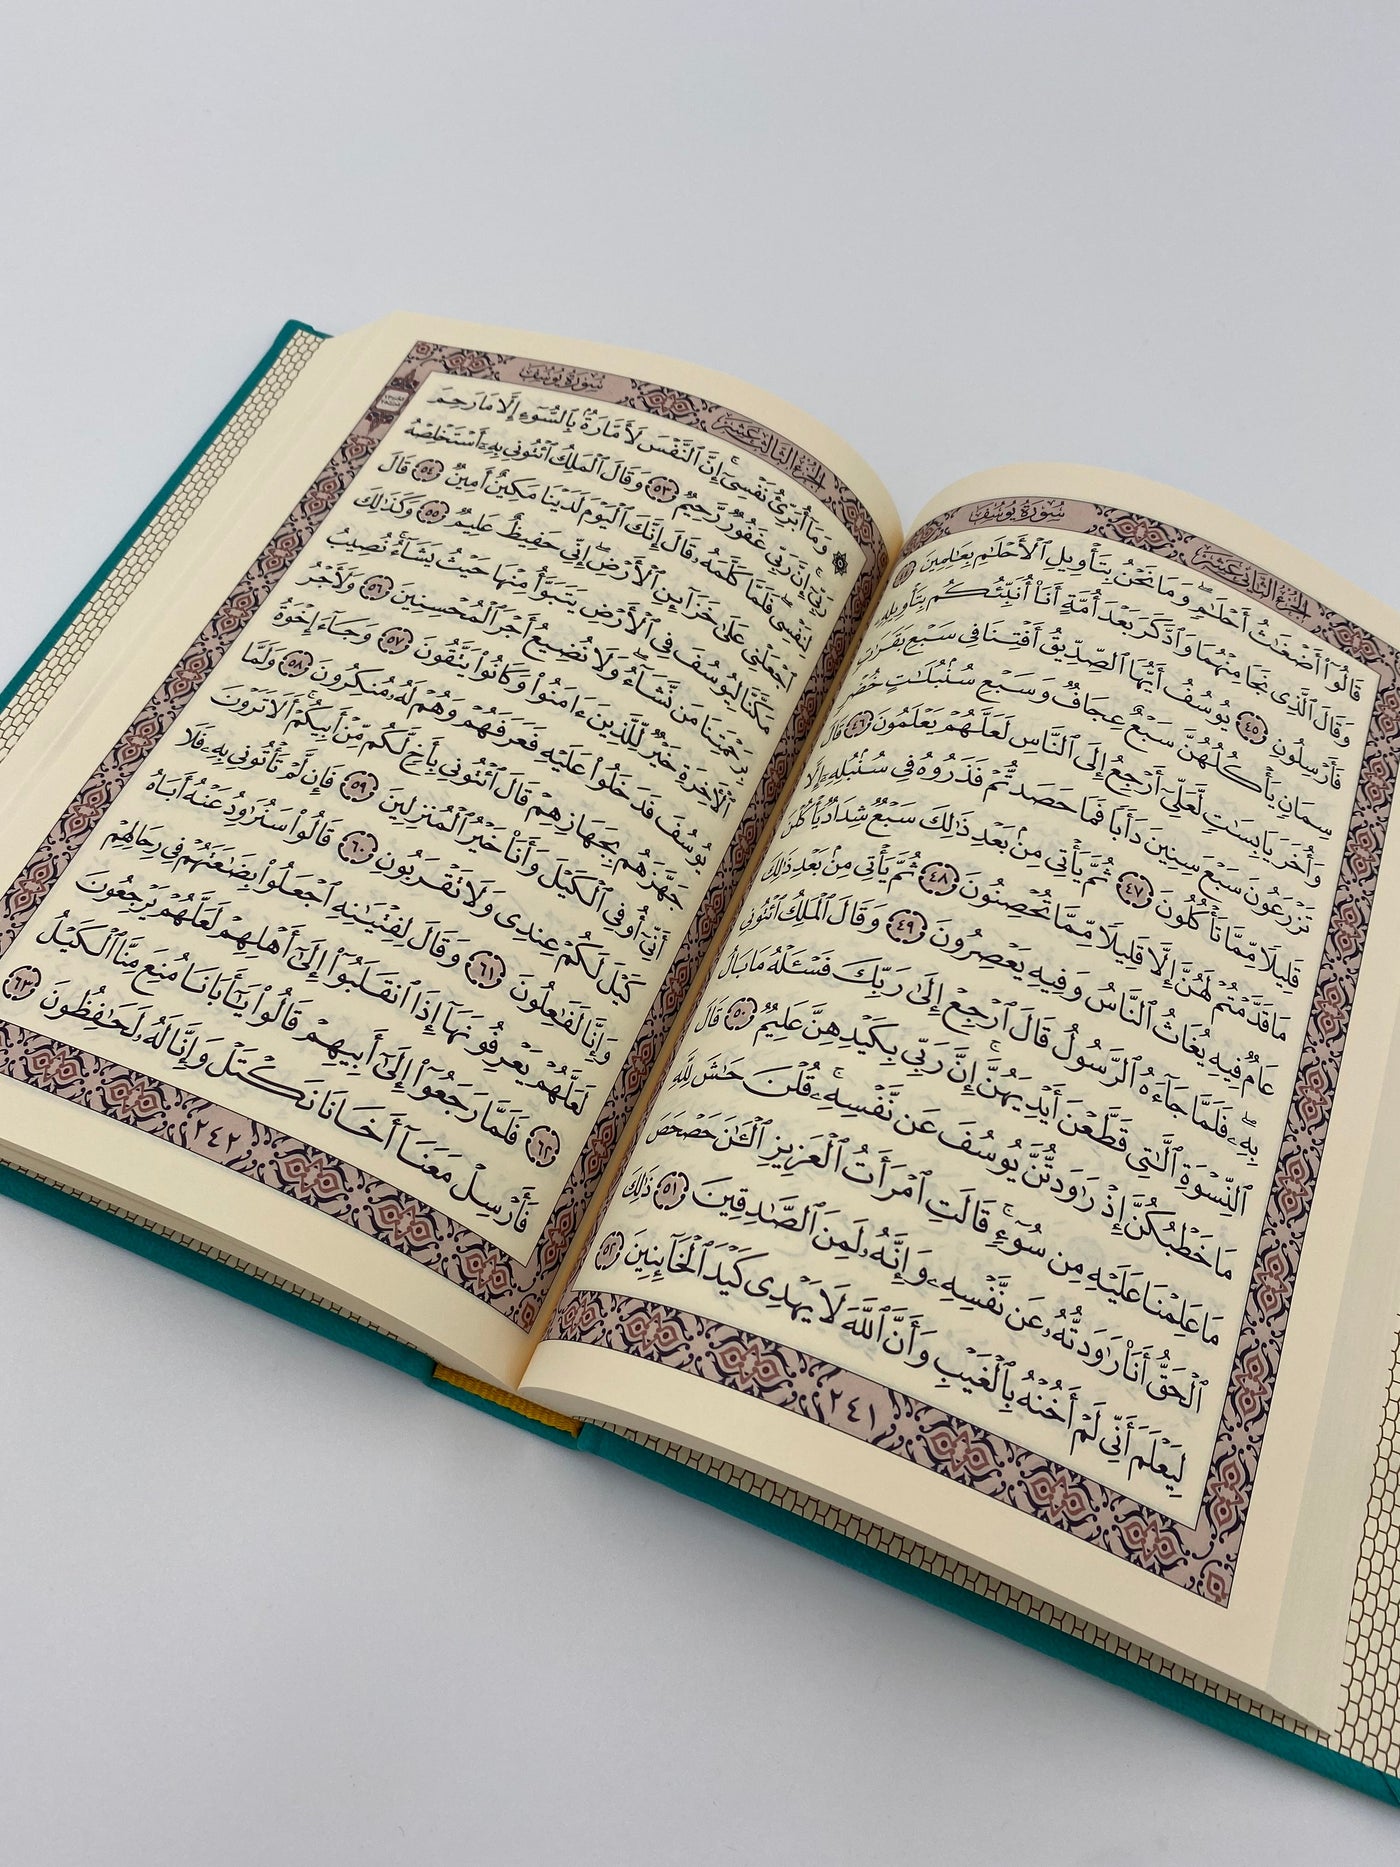 سُورَةُ يُوسُفَ
الجُزْءُ الثَّانِي عَشَرَ
قَالُوٓا۟ أَضْغَٰثُ أَحْلَٰمٍۖ وَمَا نَحْنُ بِتَأْوِيلِ ٱلْأَحْلَٰمِ بِعَٰلِمِينَ ٤٤
وَقَالَ ٱلَّذِى نَجَا مِنْهُمَا وَٱدَّكَرَ بَعْدَ أُمَّةٍ أَنَا۠ أُنَبِّئُكُم بِتَأْوِيلِهِۦ
فَأَرْسِلُونِ ٤٥ يُوسُفُ أَيُّهَا ٱلصِّدِّيقُ أَفْتِنَا فِى سَبْعِ بَقَرَٰتٍ
سِمَانٍ يَأْكُلُهُنَّ سَبْعٌ عِجَافٌ وَسَبْعِ سُنۢبُلَٰتٍ خُضْرٍ
وَأُخَرَ يَابِسَٰتٍ لَّعَلِّىٓ أَرْجِعُ إِلَى ٱلنَّاسِ لَعَلَّهُمْ يَعْلَمُونَ ٤٦ قَالَ
تَزْرَعُونَ سَبْعَ سِنِينَ دَأَبًا فَمَا حَصَدتُّمْ فَذَرُوهُ فِى سُنۢبُلِهِۦٓ إِلَّا
قَلِيلًا مِّمَّا تَأْكُلُونَ ٤٧ ثُمَّ يَأْتِى مِنۢ بَعْدِ ذَٰلِكَ سَبْعٌ شِدَادٌ يَأْكُلْنَ
مَا قَدَّمْتُمْ لَهُنَّ إِلَّا قَلِيلًا مِّمَّا تُحْصِنُونَ ٤٨ ثُمَّ يَأْتِى مِنۢ بَعْدِ ذَٰلِكَ
عَامٌ فِيهِ يُغَاثُ ٱلنَّاسُ وَفِيهِ يَعْصِرُونَ ٤٩ وَقَالَ ٱلْمَلِكُ ٱئْتُونِى
بِهِۦۖ فَلَمَّا جَآءَهُ ٱلرَّسُولُ قَالَ ٱرْجِعْ إِلَىٰ رَبِّكَ فَسْـَٔلْهُ مَا بَالُ
ٱلنِّسْوَةِ ٱلَّٰتِى قَطَّعْنَ أَيْدِيَهُنَّۚ إِنَّ رَبِّى بِكَيْدِهِنَّ عَلِيمٌ ٥٠ قَالَ
مَا خَطْبُكُنَّ إِذْ رَٰوَدتُّنَّ يُوسُفَ عَن نَّفْسِهِۦۚ قُلْنَ حَٰشَ لِلَّهِ
مَا عَلِمْنَا عَلَيْهِ مِن سُوٓءٍۚ قَالَتِ ٱمْرَأَتُ ٱلْعَزِيزِ ٱلْـَٰٔنَ حَصْحَصَ
ٱلْحَقُّ أَنَا۠ رَٰوَدتُّهُۥ عَن نَّفْسِهِۦ وَإِنَّهُۥ لَمِنَ ٱلصَّٰدِقِينَ ٥١ ذَٰلِكَ
لِيَعْلَمَ أَنِّى لَمْ أَخُنْهُ بِٱلْغَيْبِ وَأَنَّ ٱللَّهَ لَا يَهْدِى كَيْدَ ٱلْخَآئِنِينَ ٥٢
٢٤١
الجُزْءُ الثَّالِثَ عَشَرَ
سُورَةُ يُوسُفَ
وَمَآ أُبَرِّئُ نَفْسِىٓۚ إِنَّ ٱلنَّفْسَ لَأَمَّارَةٌۢ بِٱلسُّوٓءِ إِلَّا مَا رَحِمَ
رَبِّىٓۚ إِنَّ رَبِّى غَفُورٌ رَّحِيمٌ ٥٣ وَقَالَ ٱلْمَلِكُ ٱئْتُونِى بِهِۦٓ أَسْتَخْلِصْهُ
لِنَفْسِىۖ فَلَمَّا كَلَّمَهُۥ قَالَ إِنَّكَ ٱلْيَوْمَ لَدَيْنَا مَكِينٌ أَمِينٌ ٥٤ قَالَ
ٱجْعَلْنِى عَلَىٰ خَزَآئِنِ ٱلْأَرْضِۖ إِنِّى حَفِيظٌ عَلِيمٌ ٥٥ وَكَذَٰلِكَ
مَكَّنَّا لِيُوسُفَ فِى ٱلْأَرْضِ يَتَبَوَّأُ مِنْهَا حَيْثُ يَشَآءُۚ نُصِيبُ
بِرَحْمَتِنَا مَن نَّشَآءُۖ وَلَا نُضِيعُ أَجْرَ ٱلْمُحْسِنِينَ ٥٦ وَلَأَجْرُ
ٱلْءَاخِرَةِ خَيْرٌ لِّلَّذِينَ ءَامَنُوا۟ وَكَانُوا۟ يَتَّقُونَ ٥٧ وَجَآءَ إِخْوَةُ
يُوسُفَ فَدَخَلُوا۟ عَلَيْهِ فَعَرَفَهُمْ وَهُمْ لَهُۥ مُنكِرُونَ ٥٨ وَلَمَّا
جَهَّزَهُم بِجَهَازِهِمْ قَالَ ٱئْتُونِى بِأَخٍ لَّكُم مِّنْ أَبِيكُمْۚ أَلَا تَرَوْنَ
أَنِّىٓ أُوفِى ٱلْكَيْلَ وَأَنَا۠ خَيْرُ ٱلْمُنزِلِينَ ٥٩ فَإِن لَّمْ تَأْتُونِى بِهِۦ فَلَا
كَيْلَ لَكُمْ عِندِى وَلَا تَقْرَبُونِ ٦٠ قَالُوا۟ سَنُرَٰوِدُ عَنْهُ أَبَاهُ
وَإِنَّا لَفَٰعِلُونَ ٦١ وَقَالَ لِفِتْيَٰنِهِ ٱجْعَلُوا۟ بِضَٰعَتَهُمْ فِى رِحَالِهِمْ
لَعَلَّهُمْ يَعْرِفُونَهَآ إِذَا ٱنقَلَبُوٓا۟ إِلَىٰٓ أَهْلِهِمْ لَعَلَّهُمْ يَرْجِعُونَ
٦٢ فَلَمَّا رَجَعُوٓا۟ إِلَىٰٓ أَبِيهِمْ قَالُوا۟ يَٰٓأَبَانَا مُنِعَ مِنَّا ٱلْكَيْلُ
فَأَرْسِلْ مَعَنَآ أَخَانَا نَكْتَلْ وَإِنَّا لَهُۥ لَحَٰفِظُونَ ٦٣
٢٤٢